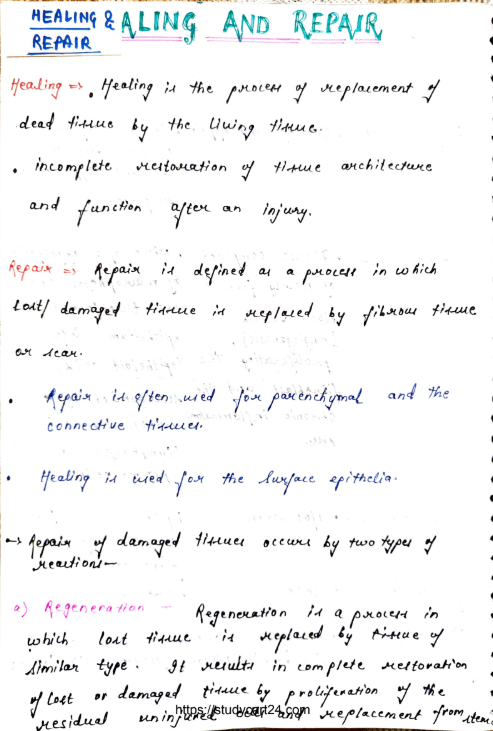 HEALING &
REPAIR
ALING AND REPAIR
Healing => • Healing is the process of replacement of
dead tissue by the living tissue.
• incomplete restoration of tissue architecture
and function after an injury.
Repair => Repair is defined as a process in which
lost/ damaged tissue is replaced by fibrous tissue
or scar.
• Repair is often used for parenchymal and the
connective tissues.
• Healing is used for the surface epithelia.
→ Repair of damaged tissues occurs by two types of
reactions—
a) Regeneration - Regeneration is a process in
which lost tissue is replaced by tissue of
similar type. It results in complete restoration
of lost or damaged tissue by proliferation of the
residual uninjured cells and replacement from stem
https://studyqart24.com